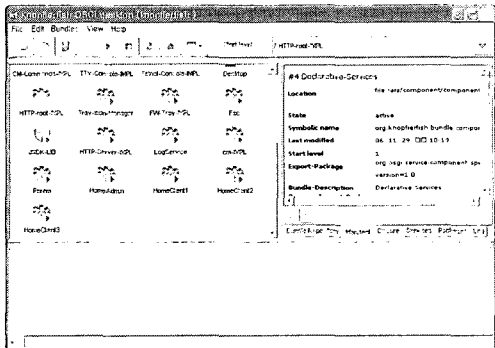 Knopflerfish OSGi desktop (knopflerfish)
File Edit Bundles View Help
Start level
7 HTTP-root-IMPL
CM-Commands-IMPL TTY-Console-IMPL Telnet-Console-IMPL Desktop
HTTP-root-IMPL Tray-icon-Manager FW-Tray-IMPL
JSDK-LIB HTTP-Server-IMPL LogService cm-IMPL
HomeAdmin HomeClient1 HomeClient2
HomeClient3
#4 Declarative-Services
Location file:jars/component/component
State active
Symbolic name org.knopflerfish.bundle.compor
Last modified 06. 11. 29 10:19
Start level 1
Export-Package org.osgi.service.component;spe
version=1.0
Bundle-Description Declarative Services
Manifest Closure Services Packages